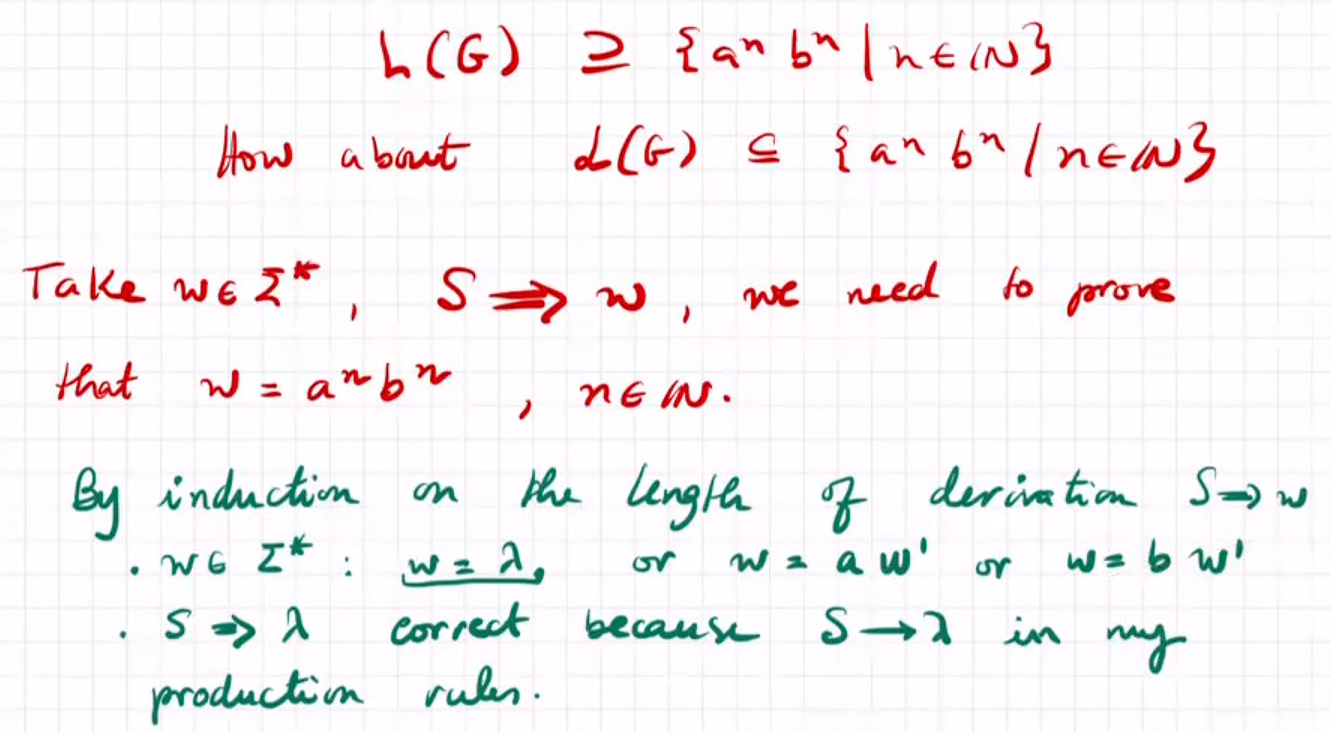 L(G) ⊇ {aⁿ bⁿ | n ∈ ℕ}
How about L(G) ⊆ {aⁿ bⁿ | n ∈ ℕ}
Take w ∈ Σ*, S ⟹ w, we need to prove
that w = aⁿ bⁿ, n ∈ ℕ.
By induction on the length of derivation S ⟹ w
. w ∈ Σ* : w = λ, or w = a w' or w = b w'
. S ⟹ λ correct because S → λ in my
production rules.